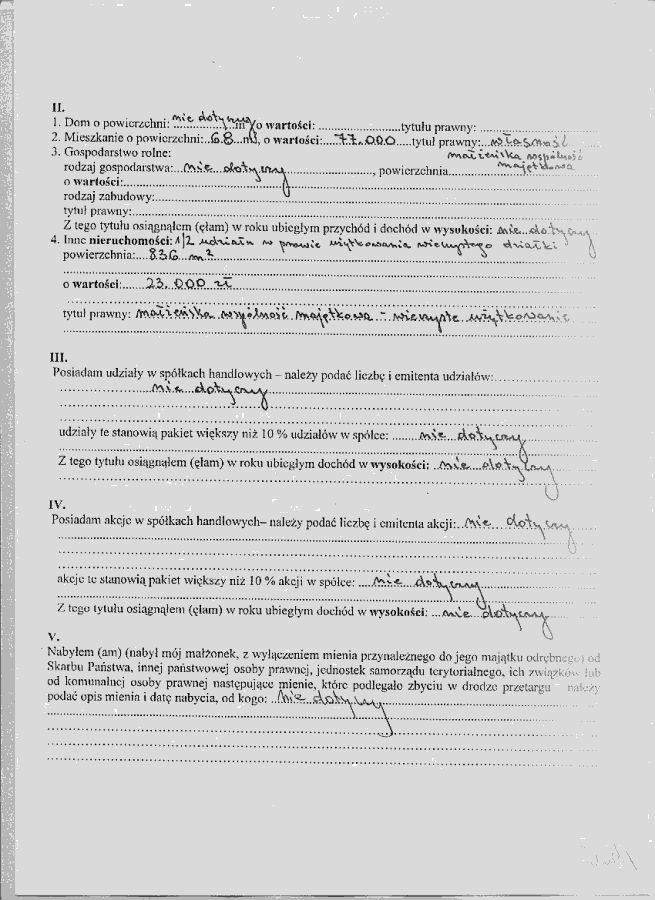 II.
1. Dom o powierzchni: nie dotyczy m² o wartości: ..................... tytułu prawny: .....................
2. Mieszkanie o powierzchni:..68..m², o wartości: ....77.000....tytuł prawny:..własność
małżeńska wspólność
majątkowa
3. Gospodarstwo rolne:
rodzaj gospodarstwa:...nie dotyczy......................, powierzchnia.....................
o wartości:..........................................
rodzaj zabudowy:..........................................
tytuł prawny:..........................................
Z tego tytułu osiągnąłem (ęłam) w roku ubiegłym przychód i dochód w wysokości: nie dotyczy
4. Inne nieruchomości: 1/2 udziału w prawie użytkowania wieczystego działki
powierzchnia:...836 m²..........................................
o wartości:......23.000 zł..........................................
tytuł prawny: małżeńska wspólność majątkowa - wieczyste użytkowanie
III.
Posiadam udziały w spółkach handlowych – należy podać liczbę i emitenta udziałów:.....................
nie dotyczy
udziały te stanowią pakiet większy niż 10 % udziałów w spółce: .......nie dotyczy
Z tego tytułu osiągnąłem (ęłam) w roku ubiegłym dochód w wysokości: ..nie dotyczy
IV.
Posiadam akcje w spółkach handlowych– należy podać liczbę i emitenta akcji:..nie dotyczy
akcje te stanowią pakiet większy niż 10 % akcji w spółce: ....nie dotyczy
Z tego tytułu osiągnąłem (ęłam) w roku ubiegłym dochód w wysokości: ...nie dotyczy
V.
Nabyłem (am) (nabył mój małżonek, z wyłączeniem mienia przynależnego do jego majątku odrębnego) od
Skarbu Państwa, innej państwowej osoby prawnej, jednostek samorządu terytorialnego, ich związków lub
od komunalnej osoby prawnej następujące mienie, które podlegało zbyciu w drodze przetargu – należy
podać opis mienia i datę nabycia, od kogo: ..nie dotyczy